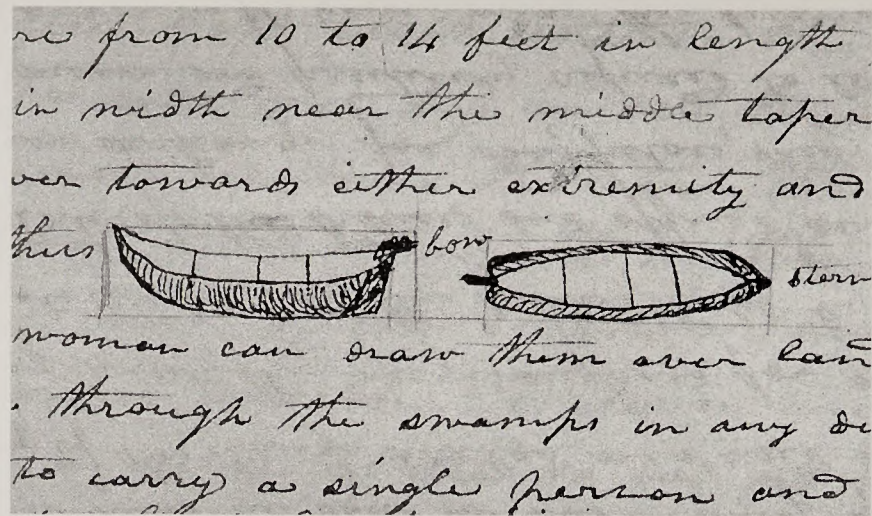 re from 10 to 14 feet in length
in width near the middle taper
ver towards either extremity and
thus bow stern
woman can draw them over lan
through the swamps in any di
to carry a single person and